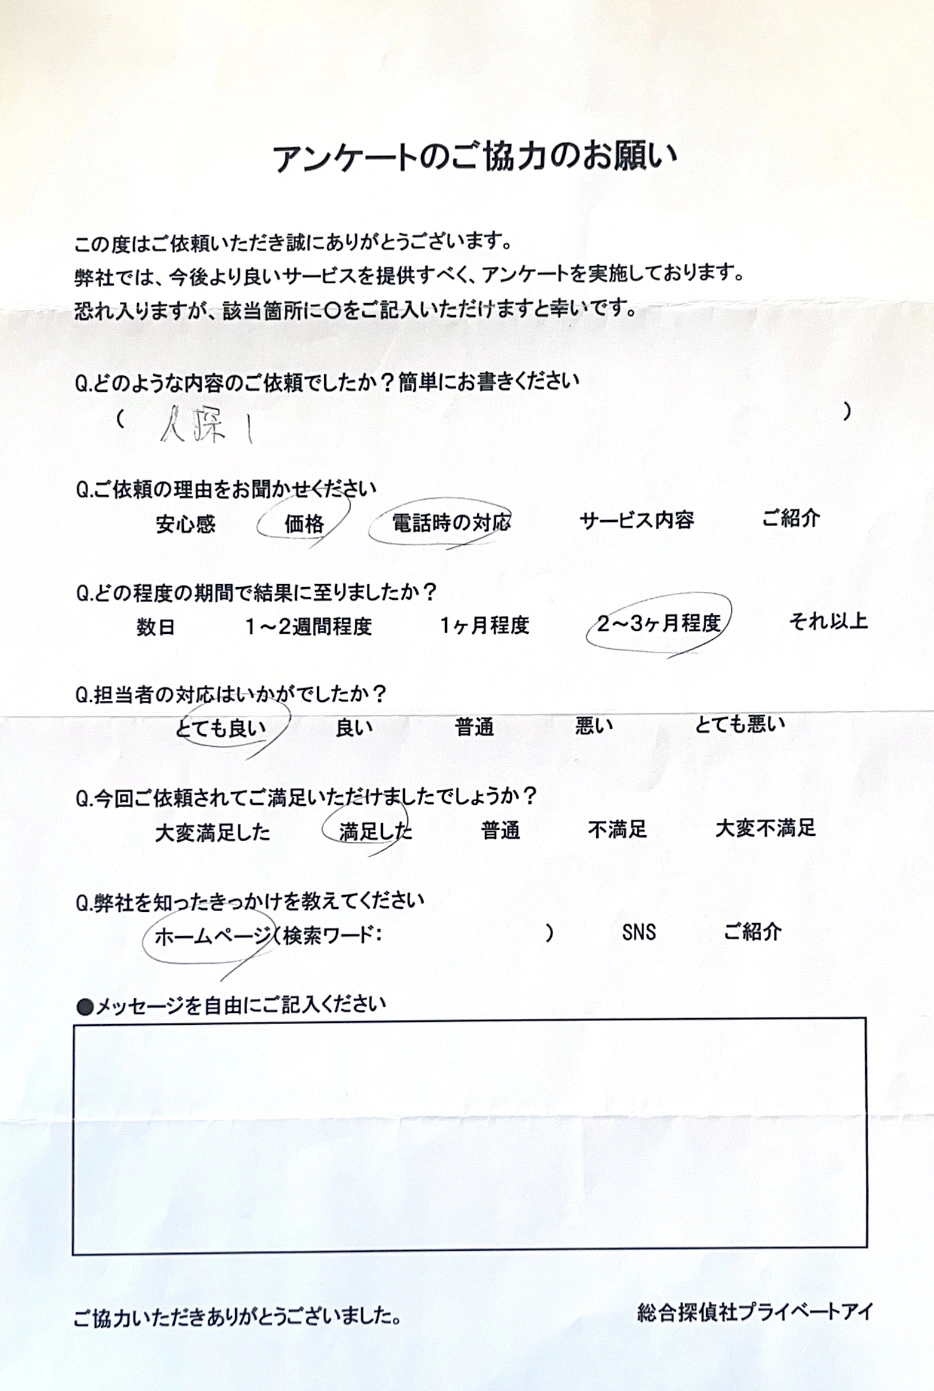 アンケートのご協力のお願い
この度はご依頼いただき誠にありがとうございます。
弊社では、今後より良いサービスを提供すべく、アンケートを実施しております。
恐れ入りますが、該当箇所に〇をご記入いただけますと幸いです。
Q.どのような内容のご依頼でしたか？簡単にお書きください
( 人探し )
Q.ご依頼の理由をお聞かせください
安心感 価格 電話時の対応 サービス内容 ご紹介
Q.どの程度の期間で結果に至りましたか？
数日 1～2週間程度 1ヶ月程度 2～3ヶ月程度 それ以上
Q.担当者の対応はいかがでしたか？
とても良い 良い 普通 悪い とても悪い
Q.今回ご依頼されてご満足いただけましたでしょうか？
大変満足した 満足した 普通 不満足 大変不満足
Q.弊社を知ったきっかけを教えてください
ホームページ(検索ワード: ) SNS ご紹介
●メッセージを自由にご記入ください
ご協力いただきありがとうございました。
総合探偵社プライベートアイ